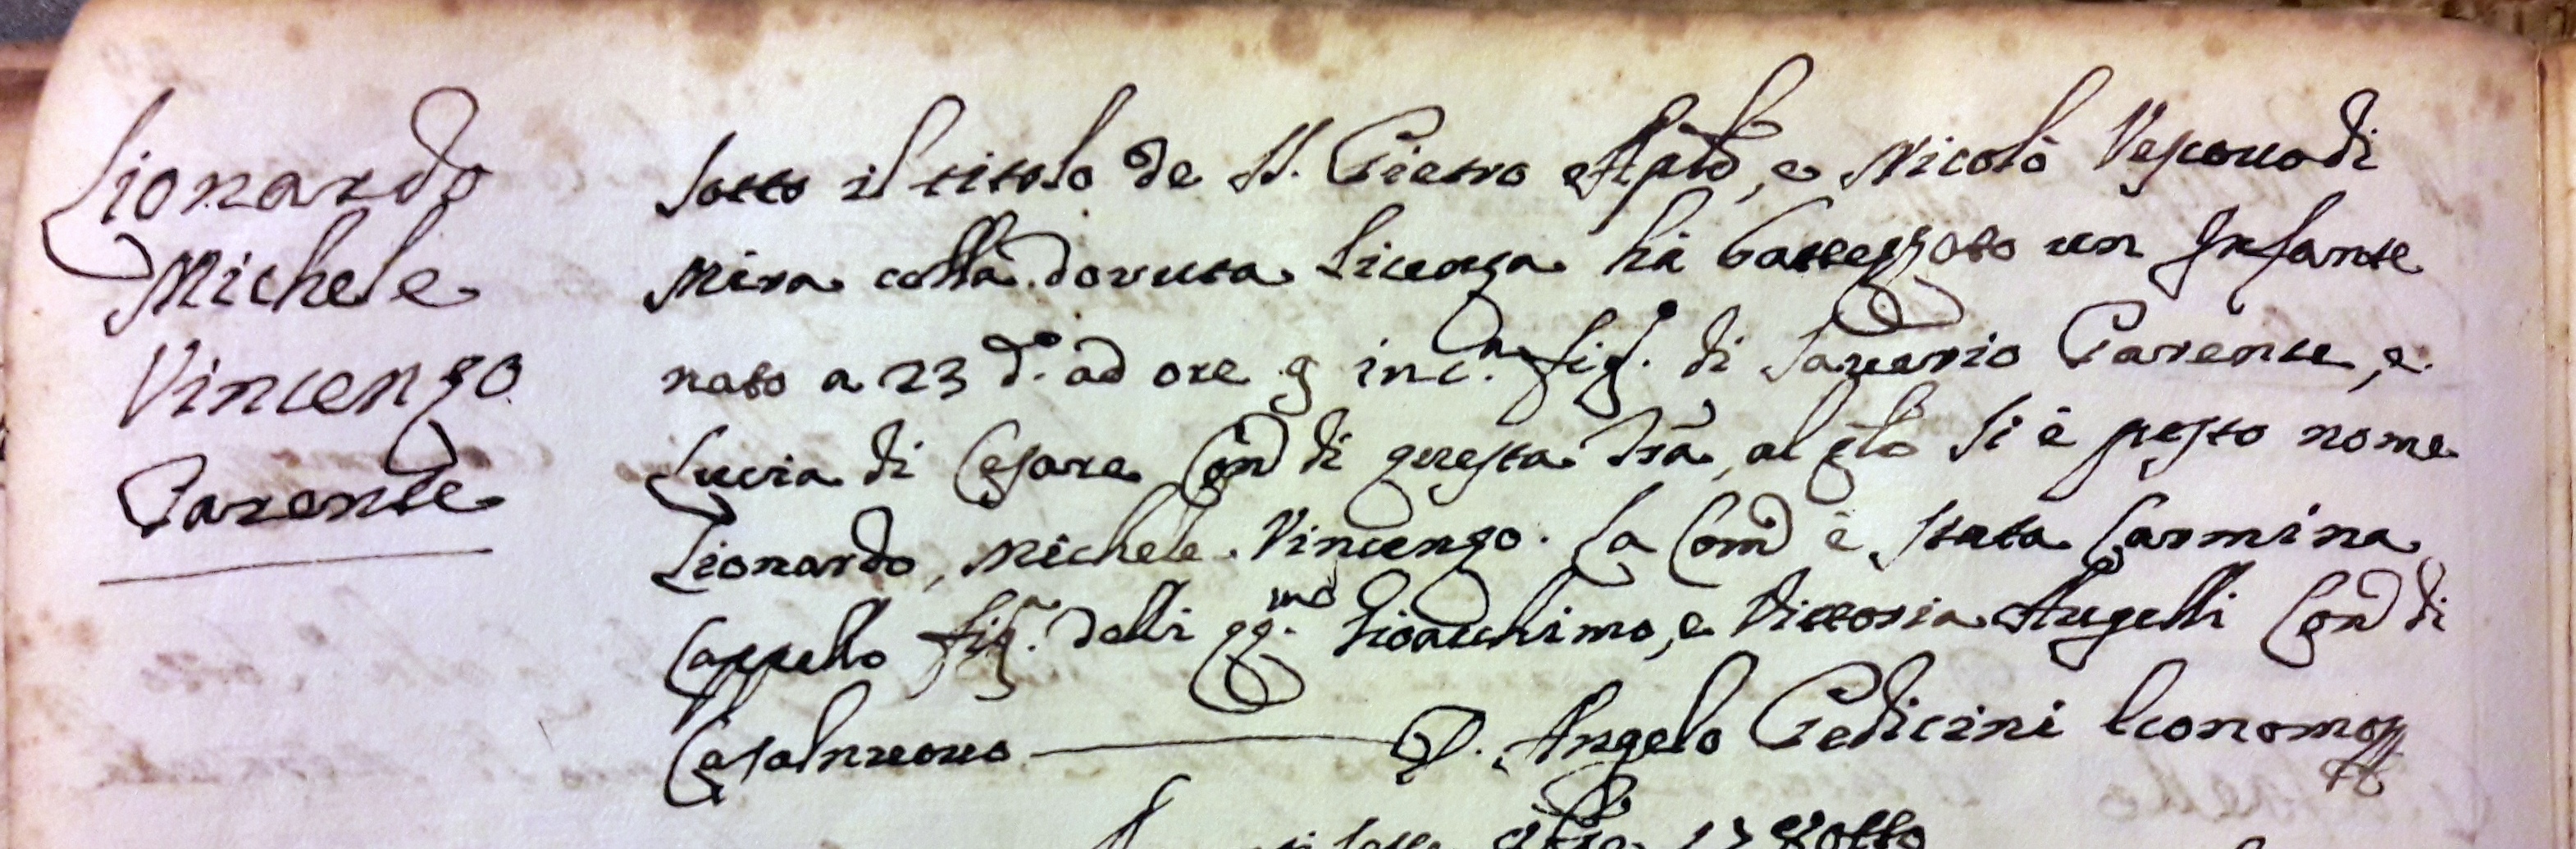 Lionardo
Michele
Vincenzo
Parente
Sotto il titolo de SS. Pietro Aplo, e Nicolò Vescouo di
Mira colla dovuta licenza hà battezzato un Infante
nato a 23 d.o ad ore 9 inc.a fig. di Saverio Parente, e
Lucia di Cesare Con di questa Tra, al qlo Si è posto nome
Lionardo, Michele Vincenzo. La Com è stata Carmina
Cappello fig. delli qq.m Gioacchimo, e Vittoria Augelli Con di
Casalnuouo — D. Angelo Pedicini Economo